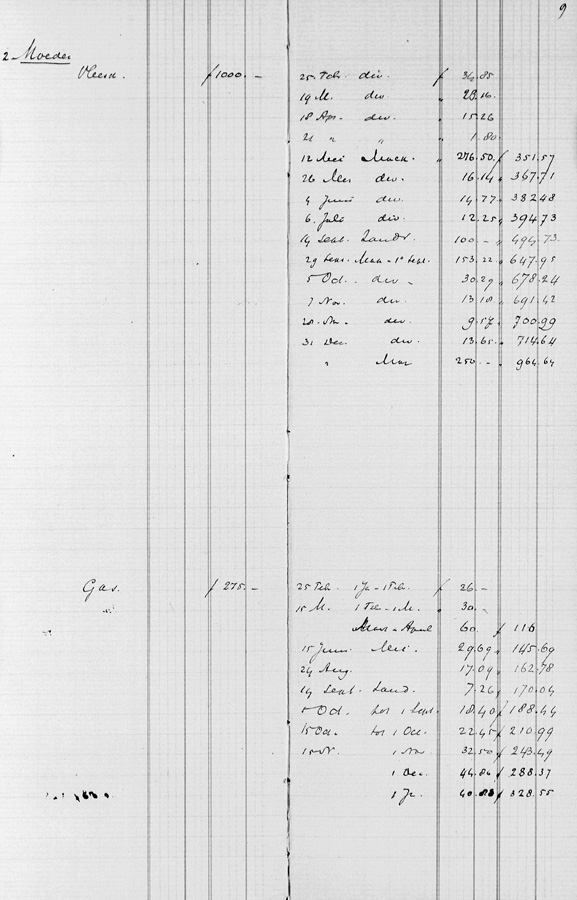 9
2 Moeder
Vleesch. f 1000.- 25 Feb. div. f 34.85
19 M. div. " 23.16
18 Apr. div. " 15.26
21 " " 1.80
12 Mei " 276.50 f 351.57
26 Mei div. 16.14 " 367.71
4 Juni div. 14.77 " 382.48
6 Juli div. 12.25 " 394.73
14 Sept. Landr. 100.- " 494.73
29 Sept. - 1e Sept. 153.22 " 647.95
5 Oct. div. 30.29 " 678.24
7 Nov. div. 13.18 " 691.42
28 Nov. div. 9.57 " 700.99
31 Dec. div. 13.65 " 714.64
" 250.- " 964.64
Gas. f 275.- 25 Feb. 1 Ja - 1 Feb. f 26.-
15 M. 1 Feb - 1 M. " 30.-
Maart - April 60. f 116
15 Juni Mei. 29.69 " 145.69
24 Aug. 17.09 " 162.78
14 Sept. Land. 7.26 " 170.04
5 Oct. tot 1 Sept. 18.40 f 188.44
15 Oct. tot 1 Oct. 22.45 f 210.99
15 N. 1 Nov 32.50 f 243.49
1 Dec. 44.86 f 288.37
1 Ja. f 328.55